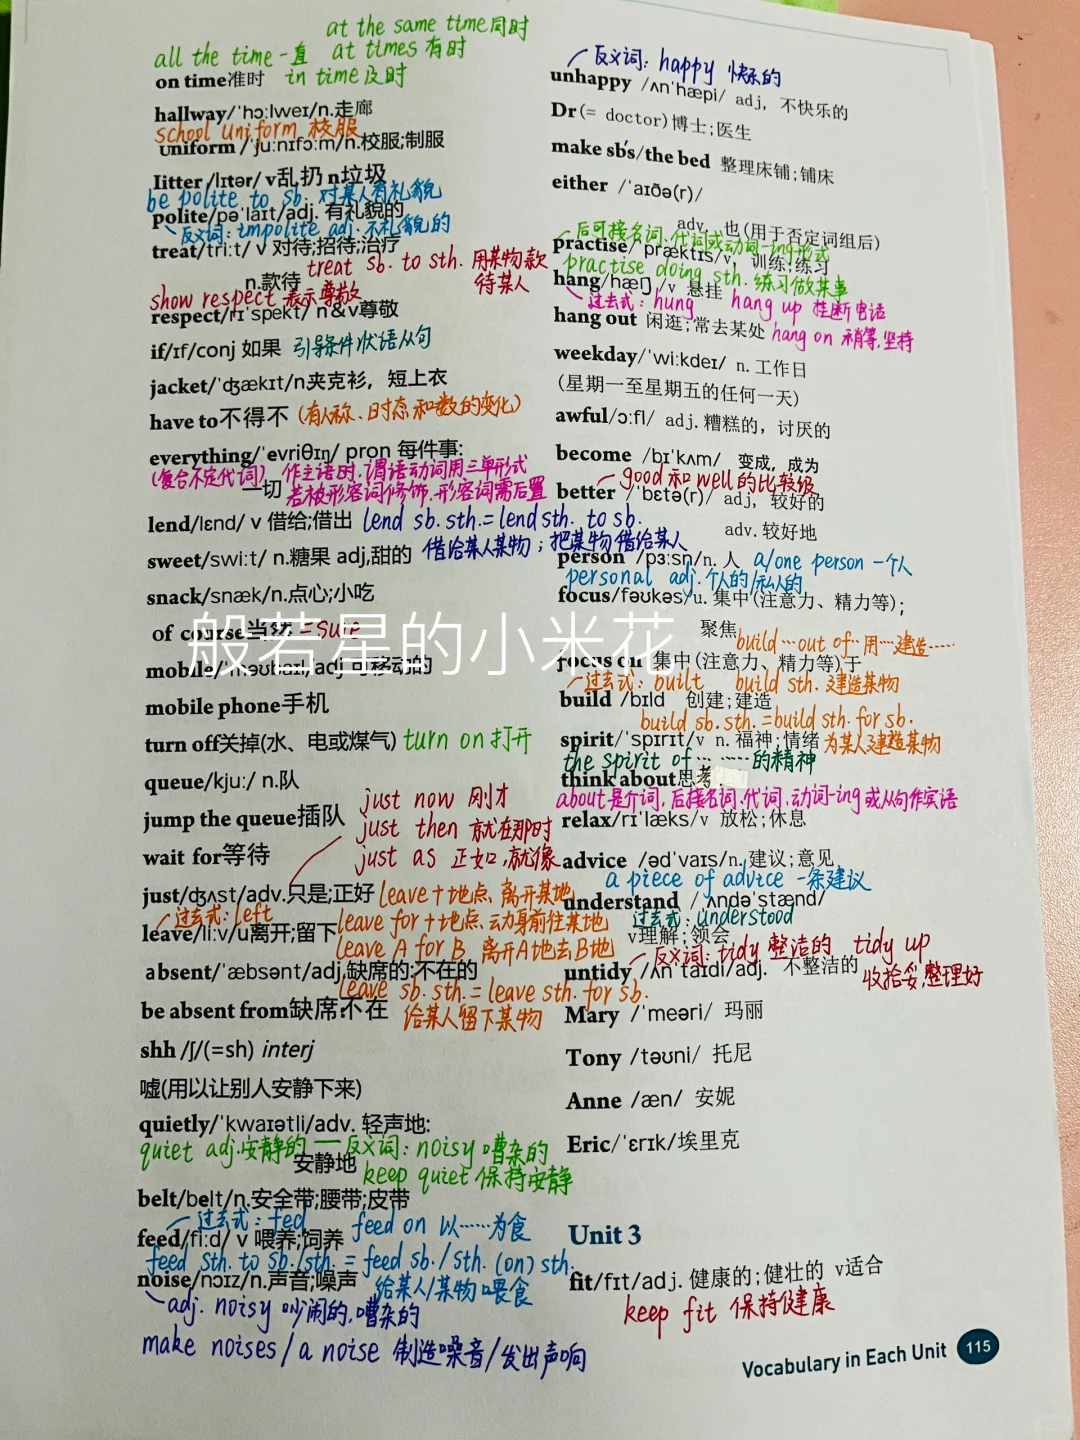 at the same time同时
all the time 一直 at times 有时
on time准时 in time 及时
hallway/ˈhɔːlweɪ/n.走廊
school uniform 校服
uniform /ˈjuːnɪfɔːm/n.校服;制服
litter/lɪtər/ v乱扔 n垃圾
be polite to sb. 对某人有礼貌
polite/pəˈlaɪt/adj. 有礼貌的
反义词: impolite adj. 不礼貌的
treat/triːt/ v 对待;招待;治疗
n.款待 treat sb. to sth. 用某物款待某人
show respect 表示尊敬
respect/rɪˈspekt/ n&v尊敬
if/ɪf/conj 如果 引导条件状语从句
jacket/ˈʤækɪt/n夹克衫，短上衣
have to不得不 (有人称、时态和数的变化)
everything/ˈevriθɪŋ/ pron 每件事:
(复合不定代词) 作主语时,谓语动词用三单形式
一切 若被形容词修饰,形容词需后置
lend/lend/ v 借给;借出 lend sb. sth.=lend sth. to sb.
借给某人某物；把某物借给某人
sweet/swiːt/ n.糖果 adj,甜的
snack/snæk/n.点心;小吃
of course当然 =sure
mobile/ˈməʊbaɪl/adj可移动的
mobile phone手机
turn off关掉(水、电或煤气) turn on打开
queue/kjuː/ n.队
just now 刚才
jump the queue插队
just then 就在那时
just as 正如,就像
wait for等待
just/ʤʌst/adv.只是;正好 leave+地点 离开某地
过去式: left
leave/liːv/v离开;留下 leave for+地点 动身前往某地
leave A for B 离开A地去B地
absent/ˈæbsənt/adj,缺席的;不在的
leave sb. sth.=leave sth. for sb.
be absent from缺席;不在 给某人留下某物
shh /ʃ/(=sh) interj
嘘(用以让别人安静下来)
quietly/ˈkwaɪətli/adv. 轻声地:
quiet adj.安静的 — 反义词: noisy 嘈杂的
安静地 keep quiet 保持安静
belt/belt/n.安全带;腰带;皮带
过去式: fed feed on 以……为食
feed/fiːd/ v 喂养;饲养
feed sth. to sb./sth. = feed sb./sth. (on) sth.
noise/nɔɪz/n.声音;噪声 给某人/某物喂食
adj. noisy 吵闹的,嘈杂的
make noises/a noise 制造噪音/发出声响
反义词: happy 快乐的
unhappy /ʌnˈhæpi/ adj, 不快乐的
Dr(= doctor)博士;医生
make sb's/the bed 整理床铺;铺床
either /ˈaɪðə(r)/
adv. 也(用于否定词组后)
后可接名词.代词或动词-ing形式
practise/ˈpræktɪs/v, 训练;练习
practise doing sth. 练习做某事
hang/hæŋ /v 悬挂
过去式: hung hang up 挂断电话
hang out 闲逛;常去某处 hang on 稍等,坚持
weekday/ˈwiːkdeɪ/ n. 工作日
(星期一至星期五的任何一天)
awful/ɔːfl/ adj. 糟糕的，讨厌的
become /bɪˈkʌm/ 变成, 成为
good 和 well 的比较级
better /ˈbetə(r)/ adj, 较好的
adv. 较好地
person /pɜːsn/n. 人 a/one person 一个人
personal adj.个人的/私人的
focus/fəʊkəs/u. 集中(注意力、精力等);
聚焦 build…out of…用…建造……
focus on 集中(注意力、精力等)于
过去式: built build sth. 建造某物
build /bɪld 创建;建造
build sb. sth.=build sth. for sb.
spirit/ˈspɪrɪt/v n. 福神;情绪 为某人建造某物
the spirit of …… ……的精神
think about思考
about是介词,后接名词.代词.动词-ing或从句作宾语
relax/rɪˈlæks/v 放松;休息
advice /ədˈvaɪs/n. 建议;意见
a piece of advice 一条建议
understand /ˌʌndəˈstænd/
过去式: understood
v理解;领会
反义词: tidy 整洁的 tidy up
untidy /ʌnˈtaɪdi/adj. 不整洁的 收拾妥,整理好
Mary /ˈmeəri/ 玛丽
Tony /təʊni/ 托尼
Anne /æn/ 安妮
Eric/ˈɛrɪk/埃里克
Unit 3
fit/fɪt/adj. 健康的;健壮的 v适合
keep fit 保持健康
Vocabulary in Each Unit 115
般若星的小米花